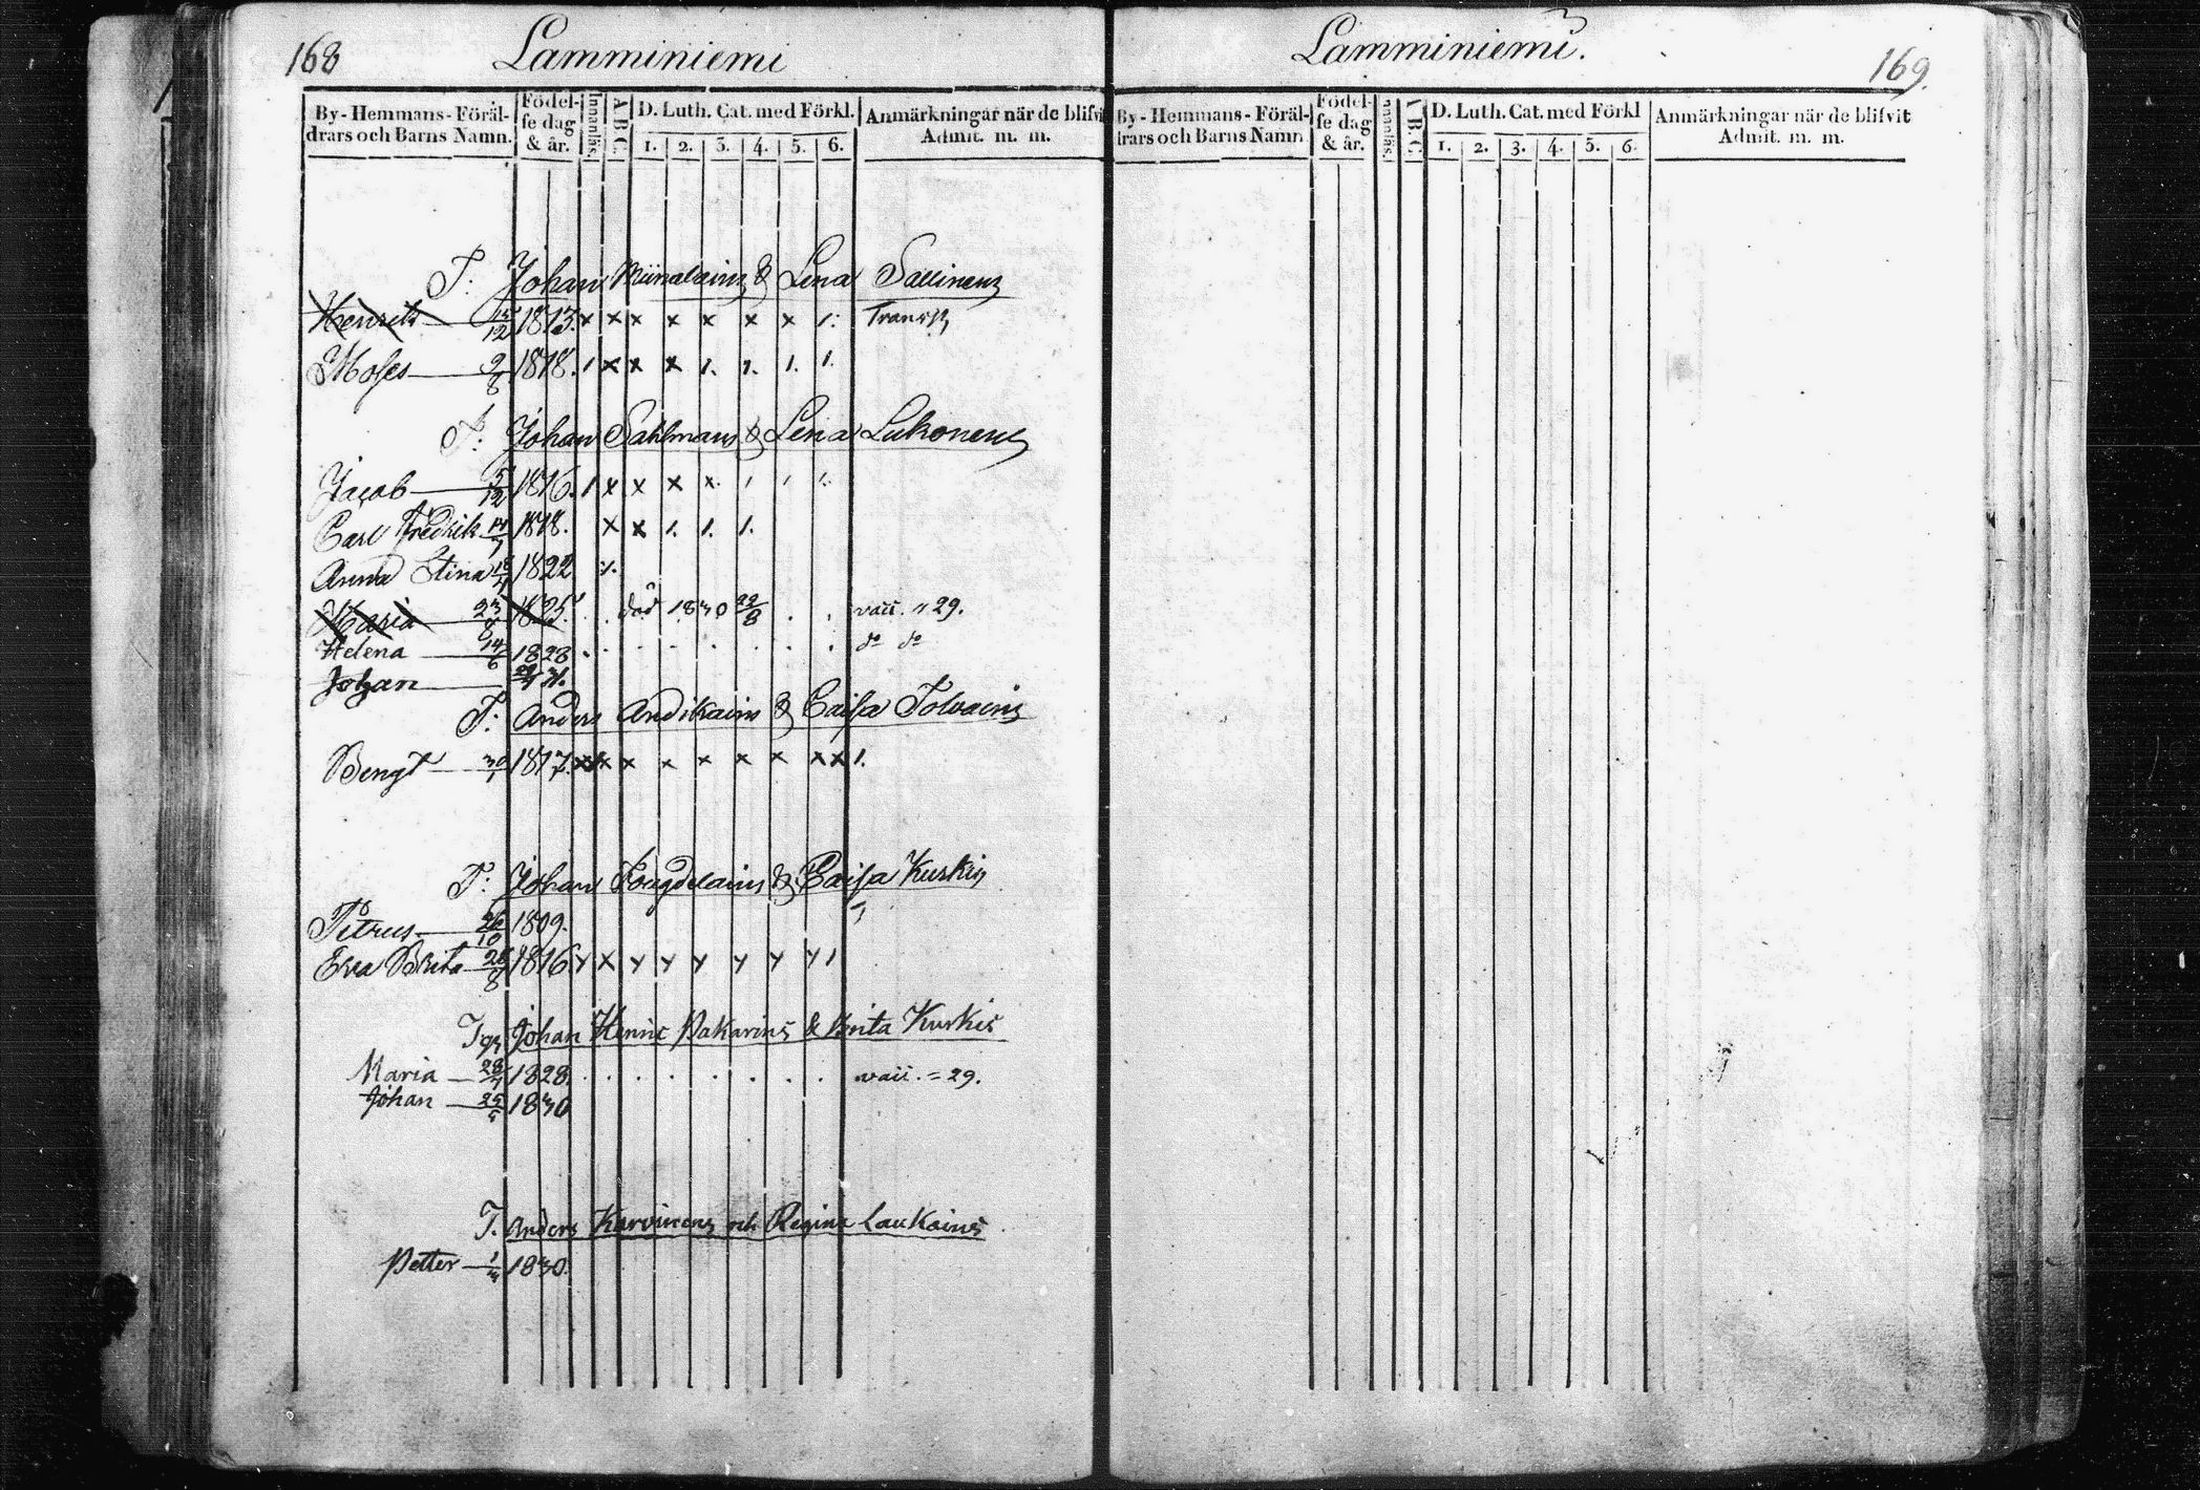 168
Lamminiemi
By-Hemmans-Föräl-
drars och Barns Namn.
Födel-
se dag
& år.
Innanläs.
A B C.
D. Luth. Cat. med Förkl.
1. 2. 3. 4. 5. 6.
Anmärkningar när de blifvit
Admit. m. m.
T: Johan & Lena Sallinens
Henrik 15/12 1813. x x x x x x x 1: Transp
Moses 9/8 1818. 1 x x x 1. 1. 1. 1.
T: Johan Sahlmans & Lena Lukonens
Jacob 5/12 1816. 1 x x x x 1 1 1.
Carl Fredrik 14/7 1818. x x 1. 1. 1.
Anna Stina 18/4 1822
Maria 23/8 1825. död 1830 22/8 vacc. " 29.
Helena 14/6 1828 do do
Johan 31.
T: Anders Andikains & Caisa Tolvains
Bengt 30/1 1817. x x x x x x x x x 1.
T: Johan Fougdelains & Caisa Kurkis
Petrus 26/10 1809.
Eva Brita 28/8 1816 y x y y y y y y 1
Johan Henric Pakarins & Brita Kurkis
Maria 28/4 1828. vacc. = 29.
Johan 25/5 1830
T. Anders Karvinens och Regina Laukains
Petter 1/3 1830.
Lamminiemi.
169.
By-Hemmans-Föräl-
drars och Barns Namn
Födel-
se dag
& år.
Innanläs.
A B C
D. Luth. Cat. med Förkl
1. 2. 3. 4. 5. 6.
Anmärkningar när de blifvit
Admit. m. m.